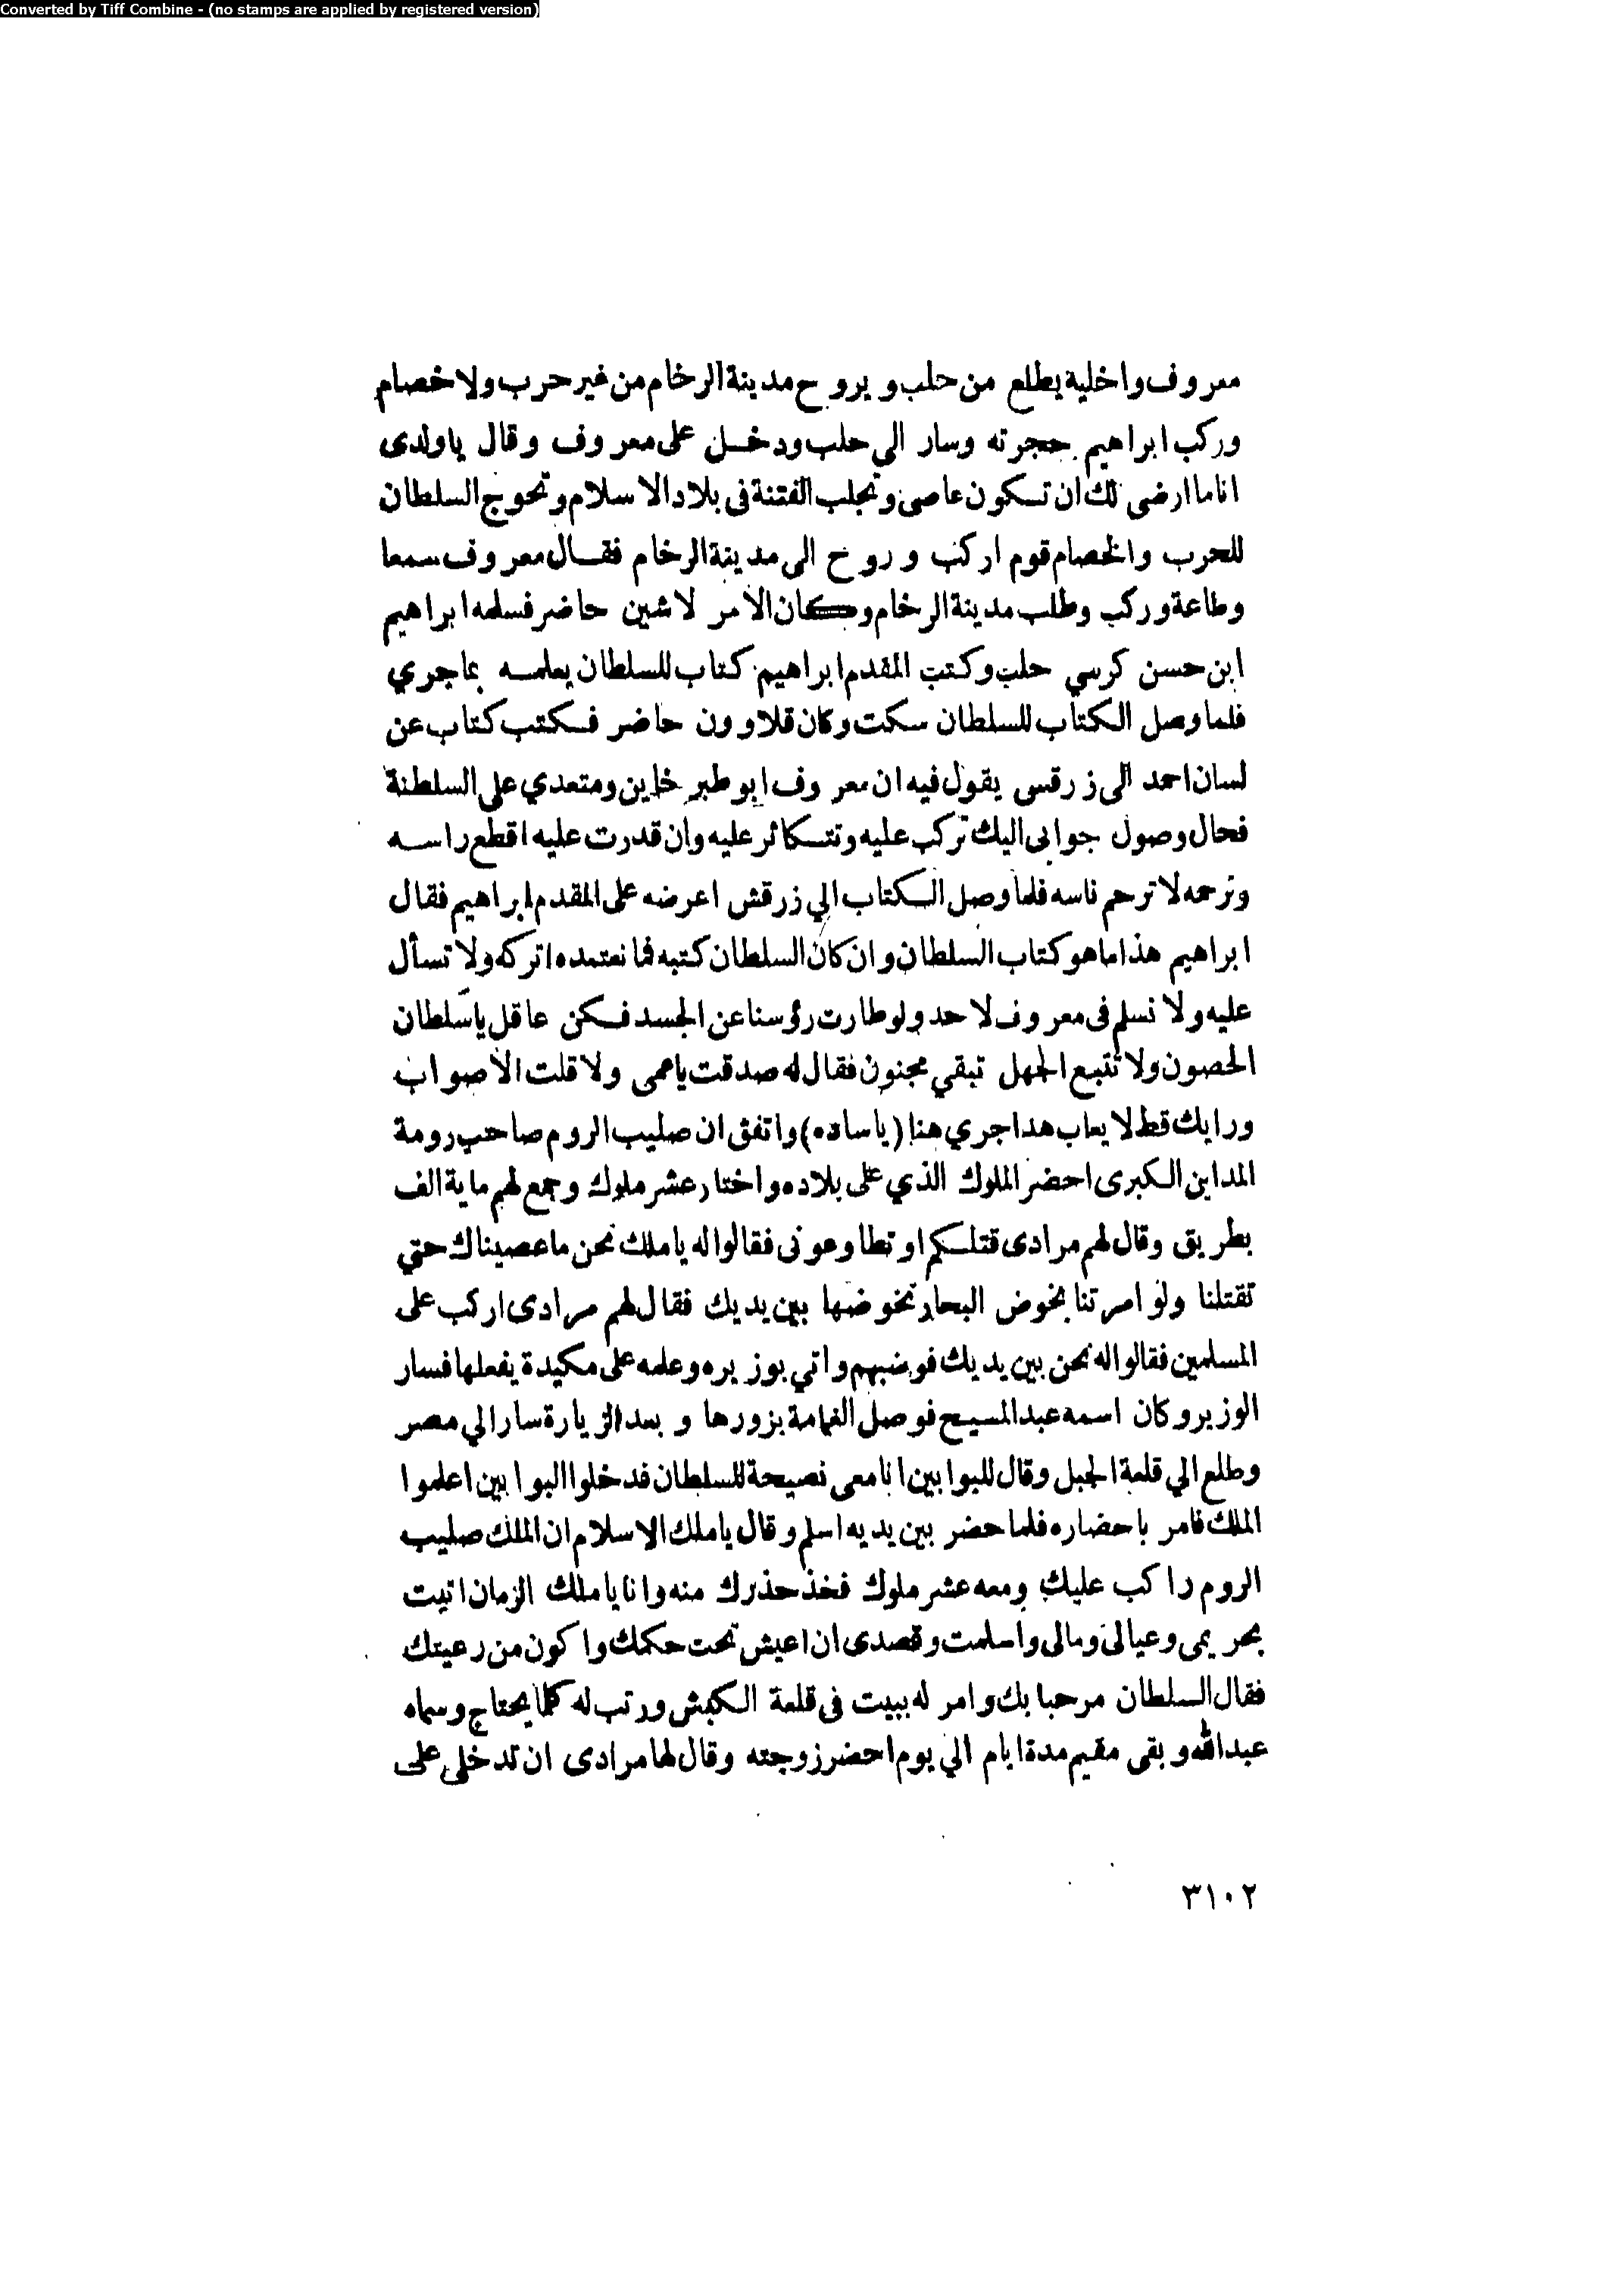 Converted by Tiff Combine - (no stamps are applied by registered version)
معروف واخليه يطلع من حلب ويروح مدينة الرخام من غير حرب ولا خصام
وركب ابراهيم حجرته وسار الي حلب ودخل على معروف وقال ياولدى
انا ما ارضى لك ان تكون عاصى وتجلب الفتنة فى بلاد الاسلام وتحوج السلطان
للحرب والخصام قوم اركب وروح الى مدينة الرخام فقال معروف سمعا
وطاعة وركب وطلب مدينة الرخام وكان الامر لاشين حاضر فسلمه ابراهيم
ابن حسن كرسي حلب وكتب المقدم ابراهيم كتاب للسلطان يعلمه بما جري
فلما وصل الكتاب للسلطان سكت وكان قلاوون حاضر فكتب كتاب عن
لسان احمد الى زرقس يقول فيه ان معروف ابو طبر خاين ومتعدي على السلطنة
فحال وصول جوابى اليك تركب عليه وتتكاثر عليه وان قدرت عليه اقطع راسه
وترحمه لا ترحم ناسه فلما وصل الكتاب الي زرقش اعرضه على المقدم ابراهيم فقال
ابراهيم هذا ماهو كتاب السلطان وان كان السلطان كتبه فما نعتمده اتركه ولا تسأل
عليه ولا نسلم فى معروف لاحد ولو طارت رؤسنا عن الجسد فكن عاقل ياسلطان
الحصون ولا تتبع الجهل تبقي مجنون فقال له صدقت ياعمى ولا قلت الاصواب
ورايك قط لا يعاب هدا جري هنا (ياساده) واتفق ان صليب الروم صاحب رومة
المداين الكبرى احضر الملوك الذي على بلاده واختار عشر ملوك وجمع لهم ماية الف
بطريق وقال لهم مرادى قتلكم او تطاوعونى فقالوا له ياملك نحن ما عصيناك حتي
تقتلنا ولو امرتنا بخوض البحار نخوضها بين يديك فقال لهم مرادى اركب على
المسلمين فقالوا له نحن بين يديك فوضبهم واتي بوزيره وعلمه على مكيدة يفعلها فسار
الوزير وكان اسمه عبد المسيح فوصل القمامة بزورها و بعد الزيارة سار الي مصر
وطلع الي قلعة الجبل وقال للبوابين انا معى نصيحة للسلطان فدخلوا البوابين اعلموا
الملك فامر باحضاره فلما حضر بين يديه اسلم وقال ياملك الاسلام ان الملك صليب
الروم راكب عليك ومعه عشر ملوك فخذ حذرك منه وانا ياملك الزمان اتيت
بحريمى وعيالى ومالى واسلمت وقصدى ان اعيش تحت حكمك واكون من رعيتك
فقال السلطان مرحبا بك وامر له ببيت فى قلعة الكبش ورتب له كلما يحتاج وسماه
عبد الله وبقى مقيم مدة ايام الي يوم احضر زوجته وقال لها مرادى ان تدخلى على
٣١٠٢